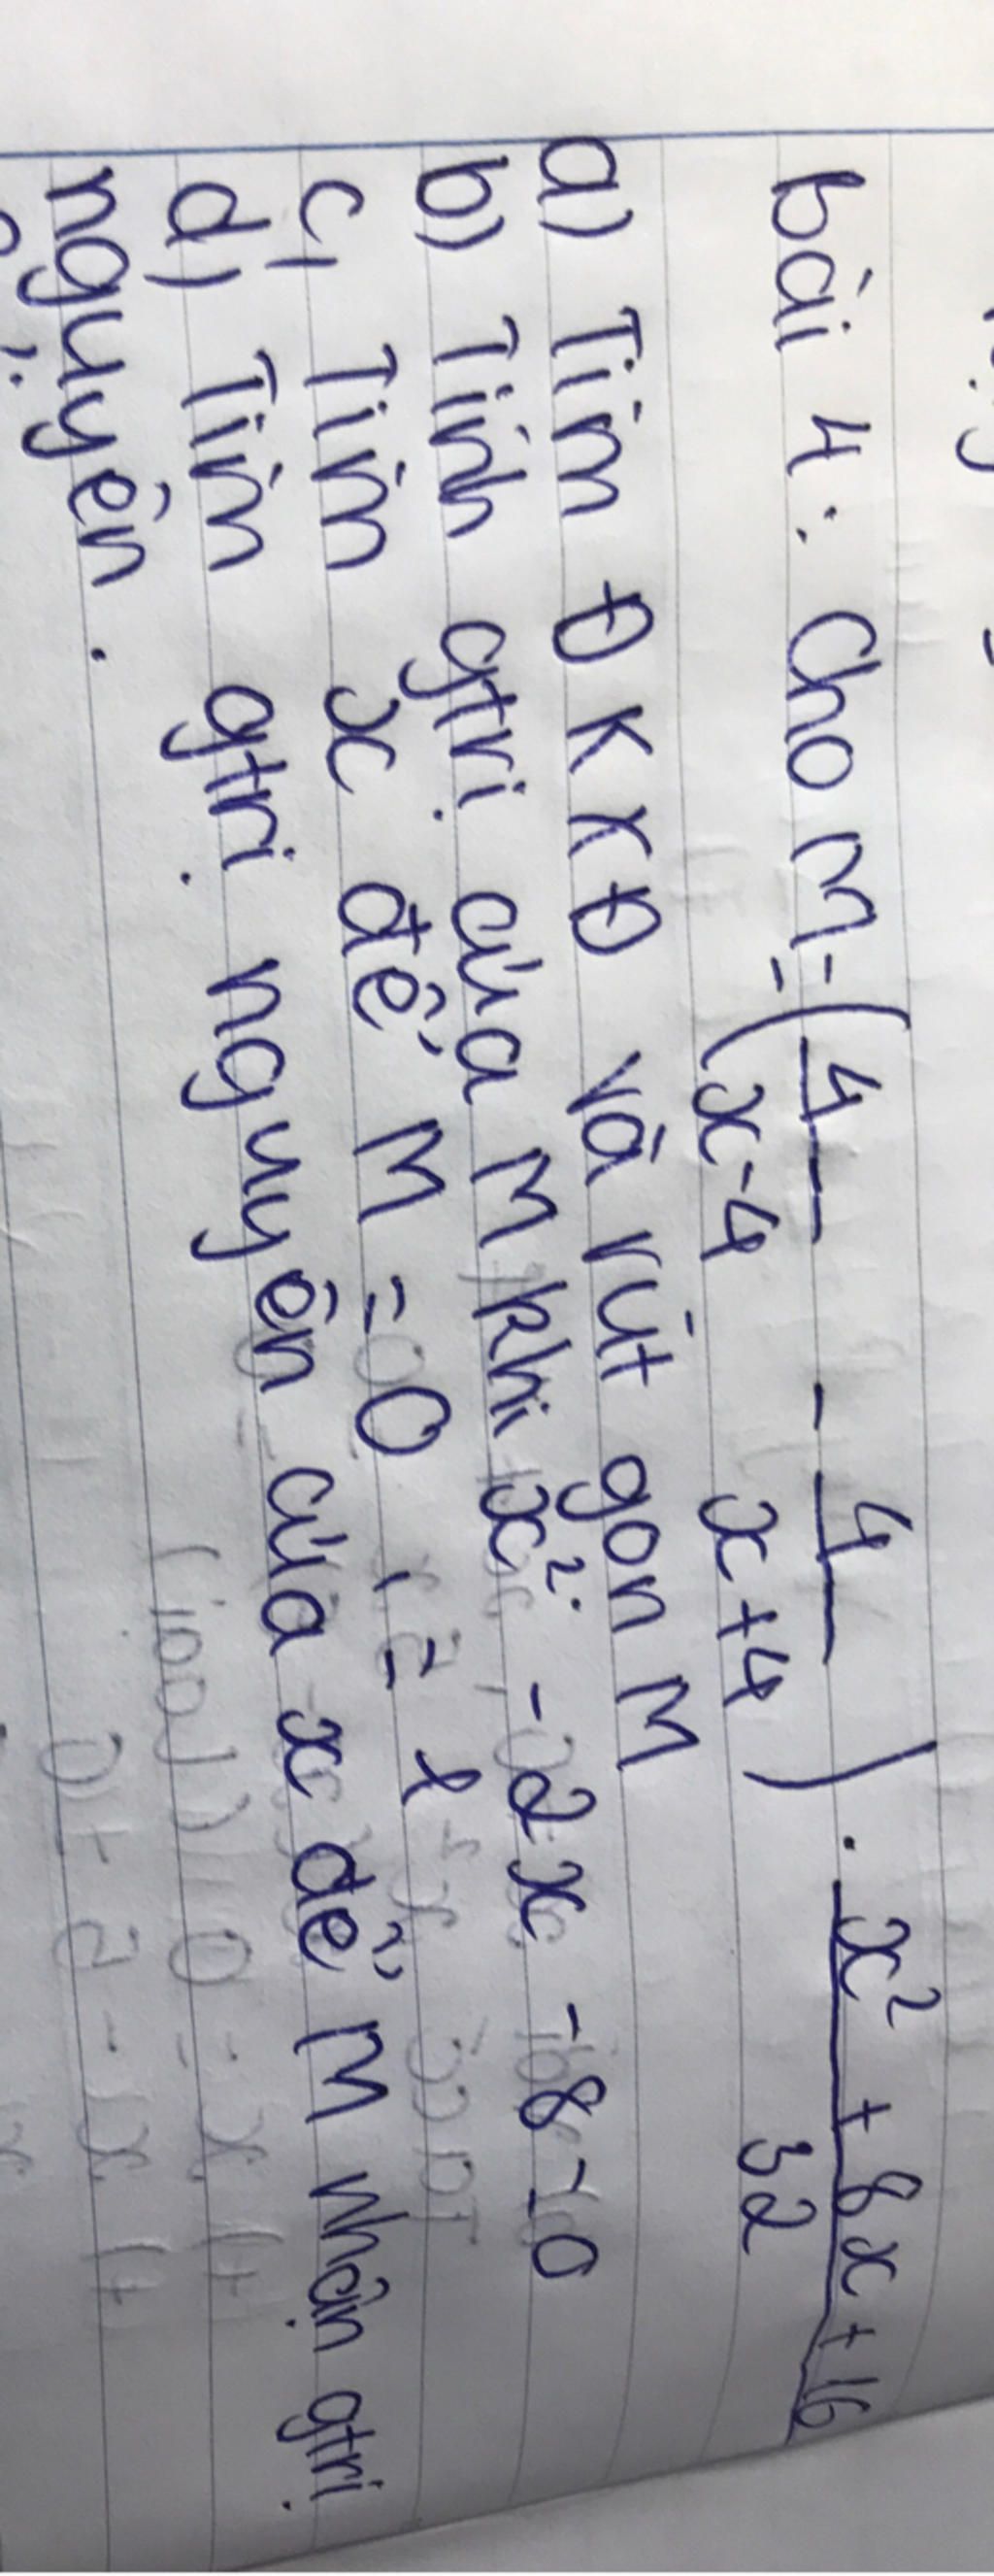 bài 4: Cho M = ( 4/x-4 - 4/x+4 ) . x² + 8x + 16/32
a) Tìm ĐKXĐ và rút gọn M
b) Tính gtrị của M khi x² - 2x - 8 = 0
c) Tìm x để M = 0, = 1
d) Tìm gtrị nguyên của x để M nhận gtrị
nguyên.